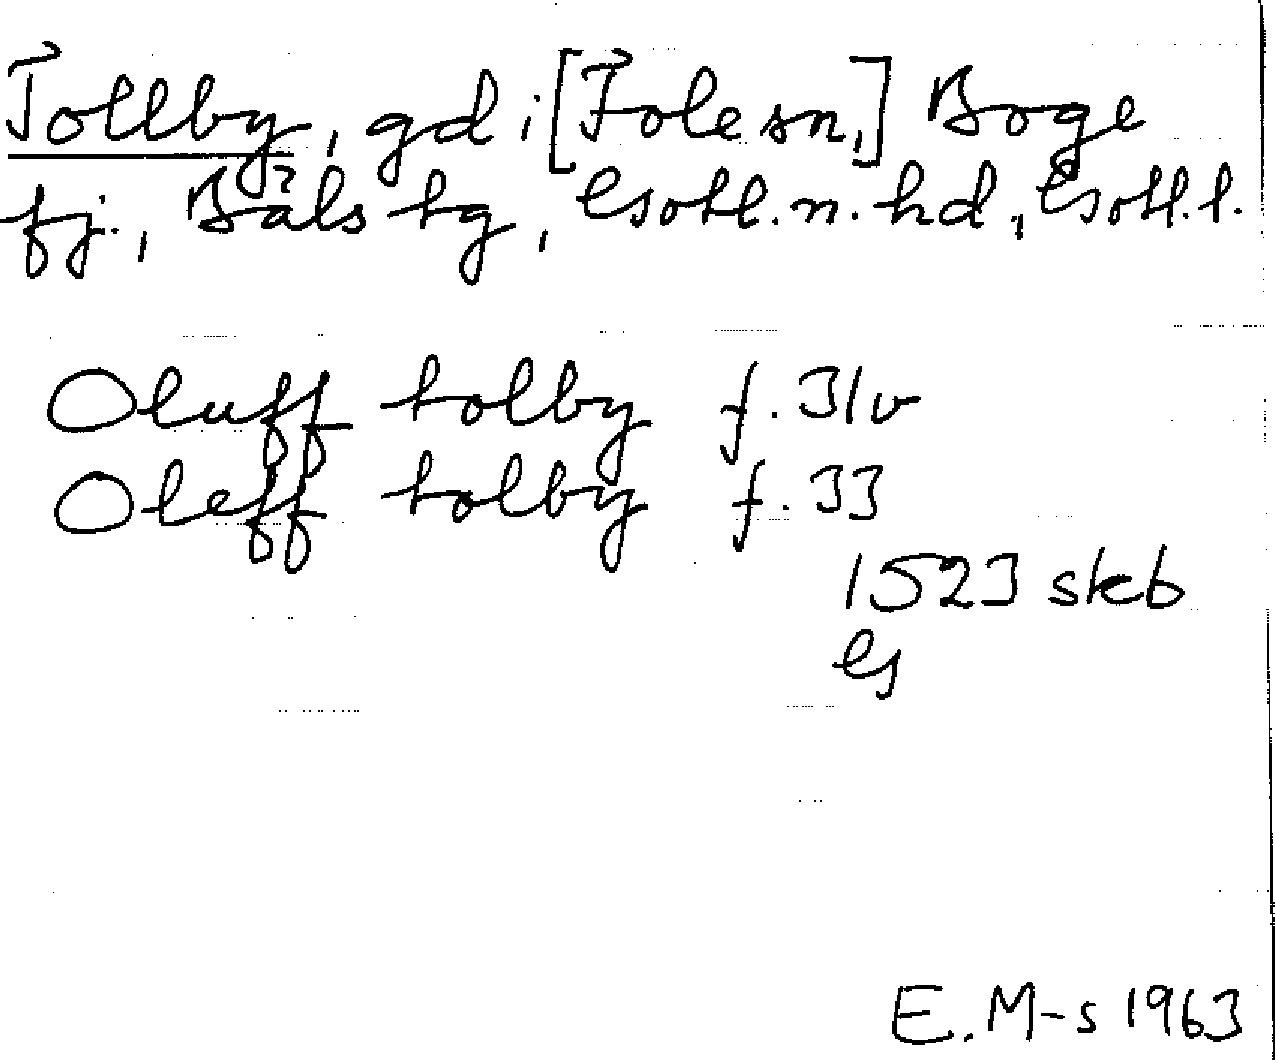 Tollby, gd i [Fole sn,] Boge
fj., Båls tg, Gotl. n. hd, Gotl. l.
Oluff tolby f. 31v
Oleff tolby f. 33
1523 skb
G
E. M-s 1963